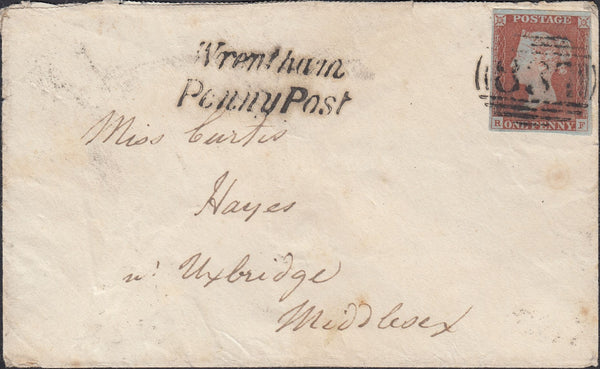 POSTAGE
Wrentham
Penny Post
R ONE PENNY F
Miss Curtis
Hayes
nr Uxbridge
Middlesex